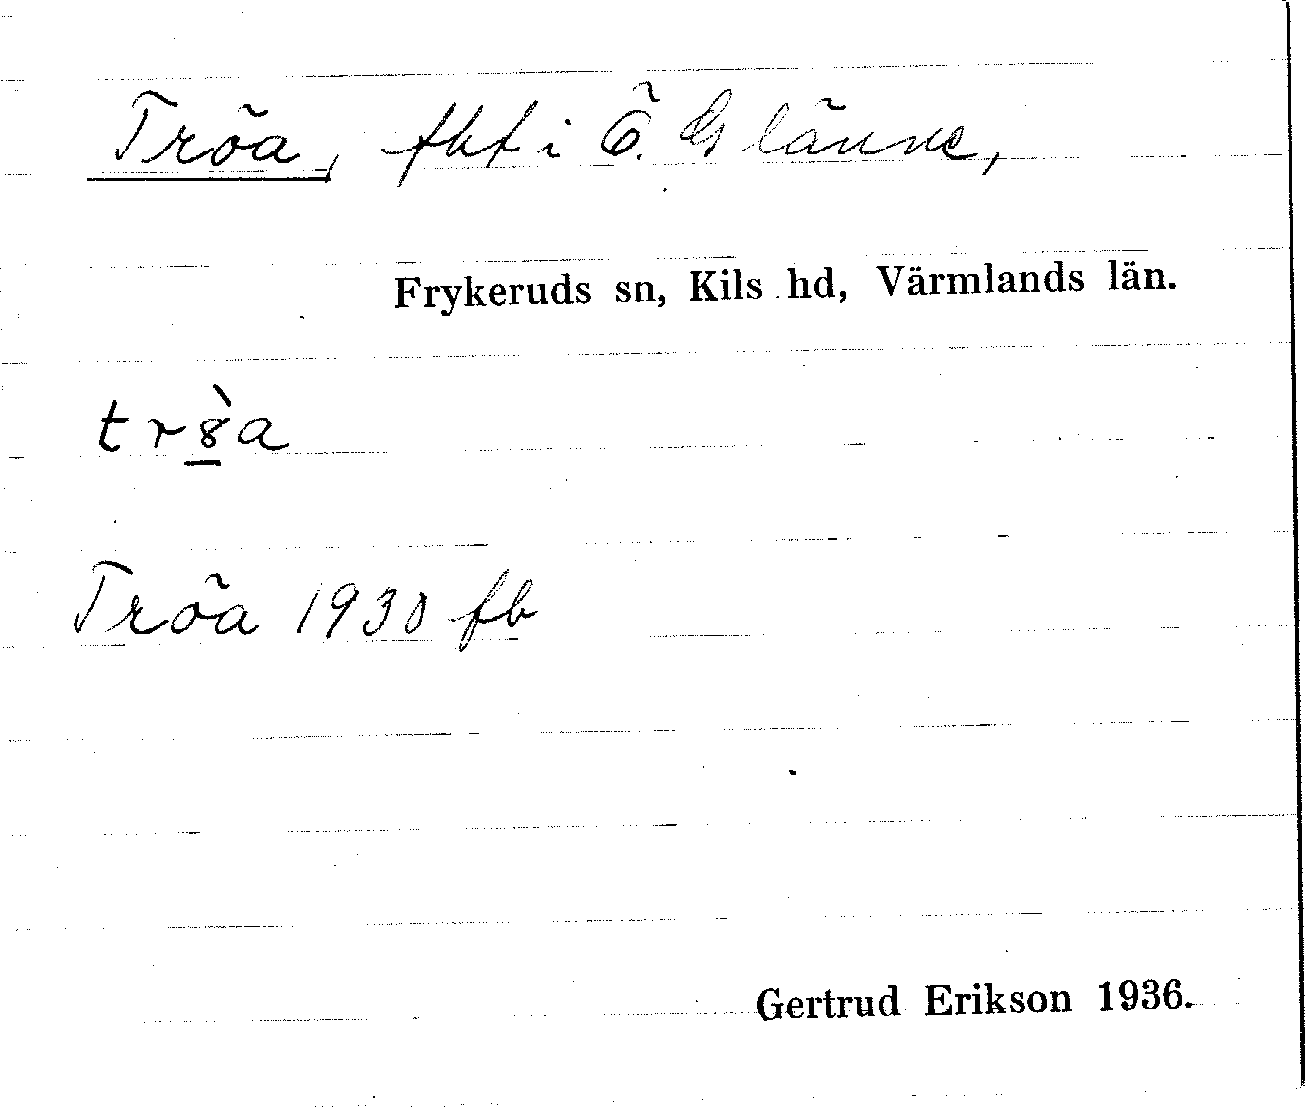 Tröa, fbf i Ö. Glänne,
Frykeruds sn, Kils hd, Värmlands län.
tr8̲̀a
Tröa 1930 fb
Gertrud Erikson 1936.